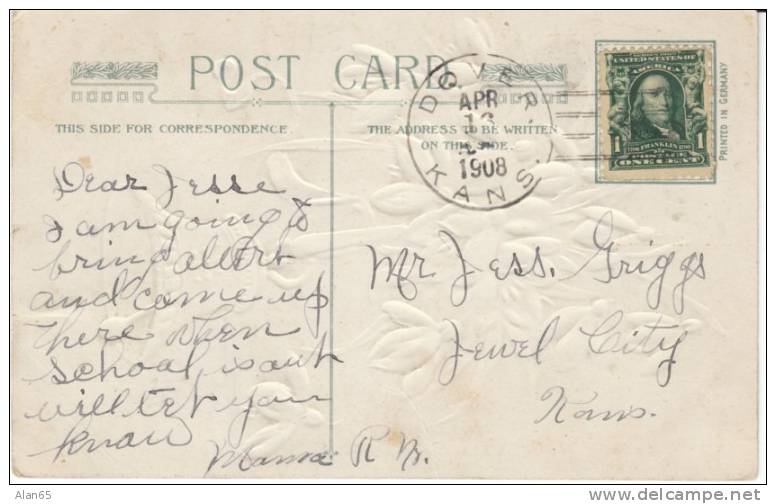 POST CARD
THIS SIDE FOR CORRESPONDENCE.
THE ADDRESS TO BE WRITTEN
ON THIS SIDE.
DOVER,
APR
1908
KANS.
UNITED STATES OF
AMERICA
1 FRANKLIN 1
POSTAGE
ONE CENT
PRINTED IN GERMANY
Dear Jesse
I am going to
bring
and come up
there when
school is out
will let you
know
Mama R
Mr. Jess. Griggs
Jewel City
Kans.
Alan65
delcampe.net